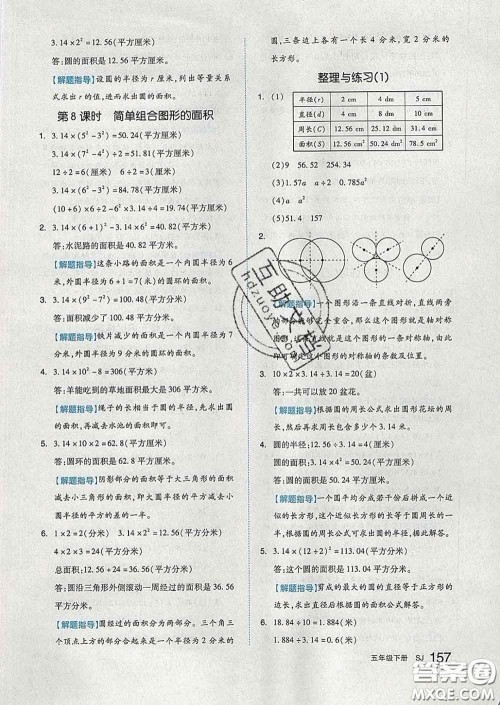 3.14×2²=12.56(平方厘米)
答:圆的面积是 12.56 平方厘米。
【解题指导】设圆的半径为 r 厘米,列出等量关系
式求出 r 的值,进而求出圆的面积。
第 8 课时 简单组合图形的面积
1. 3.14×(5²-3²)=50.24(平方厘米)
3.14×(7²-4²)=103.62(平方厘米)
12÷2=6(厘米) 6÷2=3(厘米)
3.14×(6²-3²)=84.78(平方厘米)
(10+6)×6÷2-3.14×(6÷2)²=19.74(平方厘米)
2. 3.14×[(6+1)²-6²]=40.82(平方米)
答:水泥路的面积是 40.82 平方米。
【解题指导】这条小路的面积是一个内圆半径为 6
米,外圆半径为 6+1=7(米)的圆环的面积。
3.
答:面积减少了 100.48 平方厘米。
【解题指导】铁片减少的面积是一个内圆半径为
外圆半径为 9 分米的圆环的面积。
4. 3.14×10²-8=306(平方米)
答:羊能吃到的草地面积最大是 306 平方米。
【解题指导】绳子的长相当于圆的半径,先求出圆
的面积,再减去水池的面积即可。
5. 3.14×10×2=62.8(平方厘米)
答:圆环的面积是 62.8 平方厘米。
【解题指导】阴影部分的面积等于大三角形的面积
减去小三角形的面积,即大圆半径的平方减去小圆
半径的平方。
6. 2×1×2=4(分米)
3.14×2²=12.56(平方分米)
4×2×3=24(平方分米)
总面积:12.56+24=36.56(平方分米)
答:圆沿三角形外侧滚动一周经过的面积是 36.56
平方分米。
【解题指导】圆经过的面积分为两部分。三角形三
个顶点上的部分合起来是一个圆的面积,其余部分
圆,三条边上各是一个长 4 分米,宽 2 分米的
长方形。
整理与练习(1)
1. (1)
半径(r) 2 cm 4 dm 5 cm
直径(d) 4 cm 8 dm 10 cm
周长(C) 12.56 cm 25.12 dm 31.4 cm
面积(S) 12.56 cm² 50.24 dm² 78.5 cm²
(2)9π 56 254.34
(3)1.57a a÷2 0.785a²
(5)31.4 15.7
2.
【解题指导】一个图形沿一条直线对折,直线两旁
的部分能够完全重合,那么这个图形就是轴对称
图形。圆是轴对称图形,圆的直径就是它的对称轴,
由此即可画出这个图形的对称轴的条数及位置。
3. 10×2×3.14÷3.14=20(盆)
答:一共可以放 20 盆花。
【解题指导】根据圆的周长公式求出圆形花坛的周
长,然后再求出周长里面有多少个 3.14 米。
4. 圆的半径:12.56÷3.14=4(厘米)
3.14×4²=50.24(平方厘米)
答:圆的面积是 50.24 平方厘米。
【解题指导】一个圆平均分成若干份后拼成一个近
似的长方形,这个近似的长方形的长等于圆周长的一
半,根据圆的周长公式可求出圆的半径。
5. 3.14×(12÷2)²=113.04(平方厘米)
答:这个圆的面积是 113.04 平方厘米。
【解题指导】剪成的最大的圆的直径等于正方形的
边长,由此利用圆的面积公式解答。
6. 1.884÷3.14=0.6(米)
1.884÷0.6=3.14(米)
五年级下册 SJ 157
互助文档
hdzuoye.com
答案圈
MXQE.COM